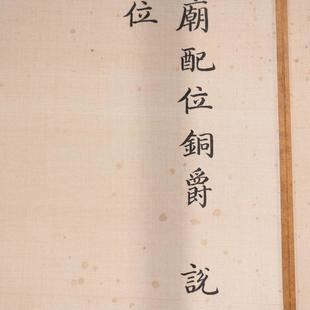 廟配位銅爵 説
位